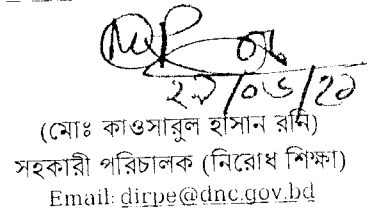 ২৯/০৬/২১
(মোঃ কাওসারুল হাসান রনি)
সহকারী পরিচালক (নিরোধ শিক্ষা)
Email: dirpe@dnc.gov.bd